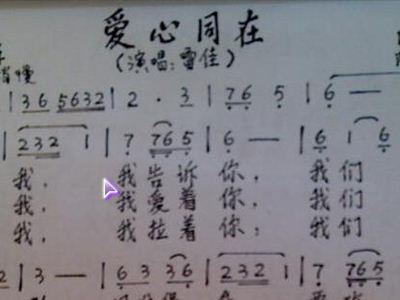 爱心同在
(演唱:雷佳)
稍慢
| 3 6 5632 | 2 · 3 | 76 5 | 6 —
| 232 1 | 7 76 5 | 6 — | 6 1 6
我, 我告诉你, 我们
我, 我爱着你, 我们
我, 我拉着你; 我们
2 | 3 — | 6 3 36 | 232 1 | 7 765